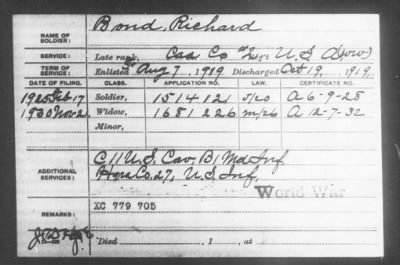 NAME OF SOLDIER: Bond, Richard
SERVICE: Late rank, Cas Co #2, Reg't U.S. A (WW)
TERM OF SERVICE: Enlisted Aug 7, 1919 Discharged Oct 19, 1919,
DATE OF FILING. CLASS. APPLICATION NO. LAW. CERTIFICATE NO.
1925 Feb 17 Soldier, 1514121 A 6-9-28
1930 Nov 2 Widow, 1681226 m/26 A 12-7-32
Minor,
ADDITIONAL SERVICES: C 11 U.S. Cav, B 1 Md Inf
Hqrs Co. 27, U.S. Inf,
World War
REMARKS: XC 779 705
Died , 1 , at